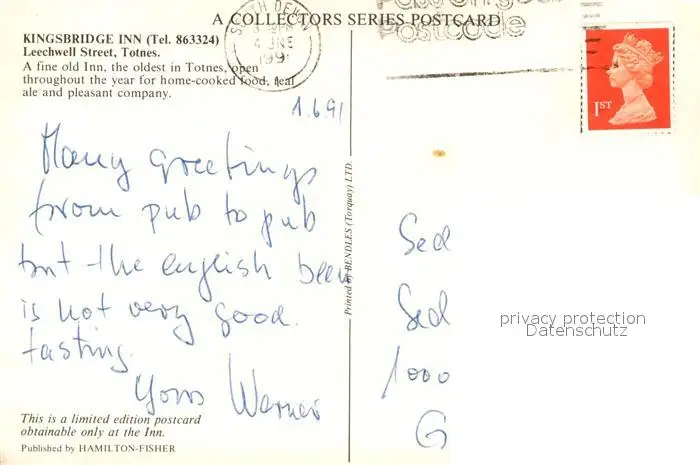 A COLLECTORS SERIES POSTCARD
KINGSBRIDGE INN (Tel. 863324)
Leechwell Street, Totnes.
A fine old Inn, the oldest in Totnes, open
throughout the year for home-cooked food, real
ale and pleasant company.
SOUTH DEVON
4 JNE
199
Postcode
1ST
1.6.91
Many greetings
from pub to pub
but the english beer
is not very good
tasting.
Yours Werner
This is a limited edition postcard
obtainable only at the Inn.
Published by HAMILTON-FISHER
Printed by BENDLES (Torquay) LTD.
Sed
Sed
1000
G
privacy protection
Datenschutz